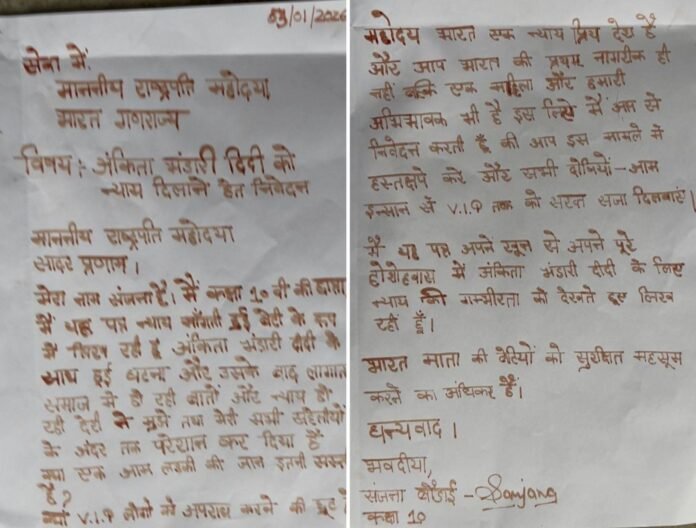 03/01/2026
सेवा में:
माननीय राष्ट्रपति महोदया
भारत गणराज्य
विषय: अंकिता भंडारी दिदी को
न्याय दिलाने हेतु निवेदन
माननीय राष्ट्रपति महोदया
सादर प्रणाम।
मेरा नाम संजना है। मैं कक्षा 10 वी की छात्रा
मैं यह पत्र न्याय माँगती हुई बेटी के रूप
में लिख रही हूँ अंकिता भंडारी दीदी के
साथ हुई घटना और उसके बाद लागातार
समाज में हो रही बातों और न्याय हो
रही देरी ने मुझे तथा मेरी सभी सहेलीयों
के अंदर तक परेशान कर दिया है
क्या एक आम लड़की की जान इतनी सस्ती
है?
क्या V.I.P लोगों को अपराध करने की छूट है
महोदय भारत एक न्याय प्रिय देश है
और आप भारत की प्रथम नागरीक ही
नहीं बल्कि एक महिला और हमारी
अभिभावक भी है इस लिये मैं आप से
निवेदन करती हूँ की आप इस मामले में
हस्तक्षेप करें और सभी दोषियों - आम
इन्सान से V.I.P तक को सख्त सजा दिलवाएं।
मैं यह पत्र अपने खून से अपने पूरे
होशोहवास में अंकिता भंडारी दीदी के लिए
न्याय की गम्भीरता को देखते हुए लिख
रही हूँ।
भारत माता की बेटियों को सुरक्षित महसूस
करने का अधिकार है।
धन्यवाद।
भवदीया,
संजना - Sanjana
कक्षा 10